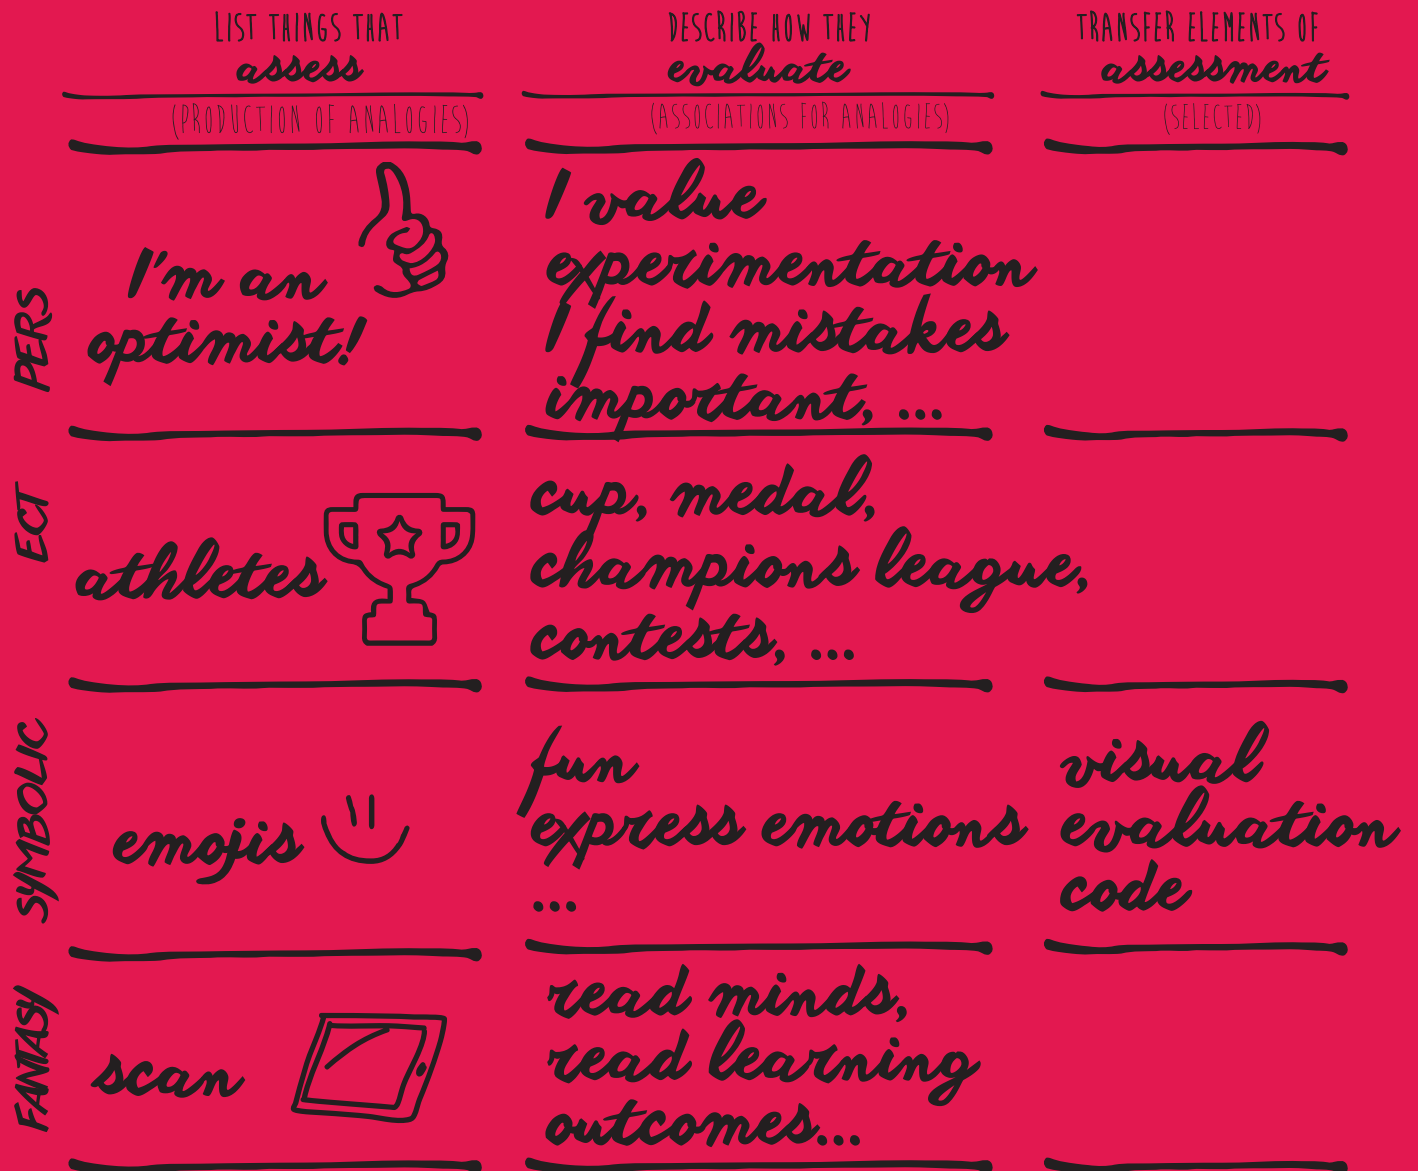 LIST THINGS THAT
assess
(PRODUCTION OF ANALOGIES)
DESCRIBE HOW THEY
evaluate
(ASSOCIATIONS FOR ANALOGIES)
TRANSFER ELEMENTS OF
assessment
(SELECTED)
PERS
I'm an
optimist!
I value
experimentation
I find mistakes
important, ...
ECT
athletes
cup, medal,
champions league,
contests, ...
SYMBOLIC
emojis
fun
express emotions
...
visual
evaluation
code
FANTASY
scan
read minds,
read learning
outcomes...